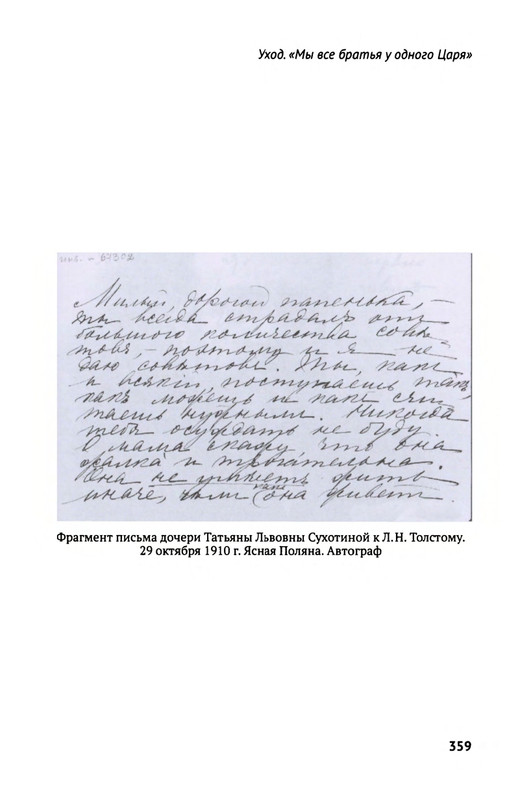 Уход. «Мы все братья у одного Царя»
инв. – 61302
Милый, дорогой папенька, –
ты всегда страдалъ отъ
большого количества совѣ
товъ, – поэтому и я не
даю совѣтовъ. Ты, какъ
и всякій, поступаешь такъ,
какъ можешь и какъ счи
таешь нужнымъ. Никогда
тебя осуждать не буду.
О мама скажу что она
жалка и трогательна.
Она не умѣетъ жить
иначе, чѣмъ она живетъ.
Фрагмент письма дочери Татьяны Львовны Сухотиной к Л. Н. Толстому.
29 октября 1910 г. Ясная Поляна. Автограф
359